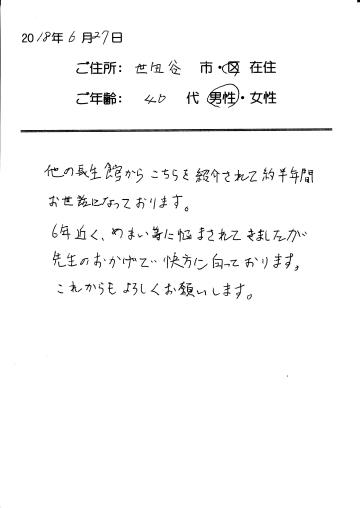 2018年6月27日
ご住所: 世田谷 市・区 在住
ご年齢: 40 代 男性・女性
他の長生館からこちらを紹介されて約半年間
お世話になっております。
6年近く、めまい等に悩まされてきましたが
先生のおかげで快方に向っております。
これからもよろしくお願いします。